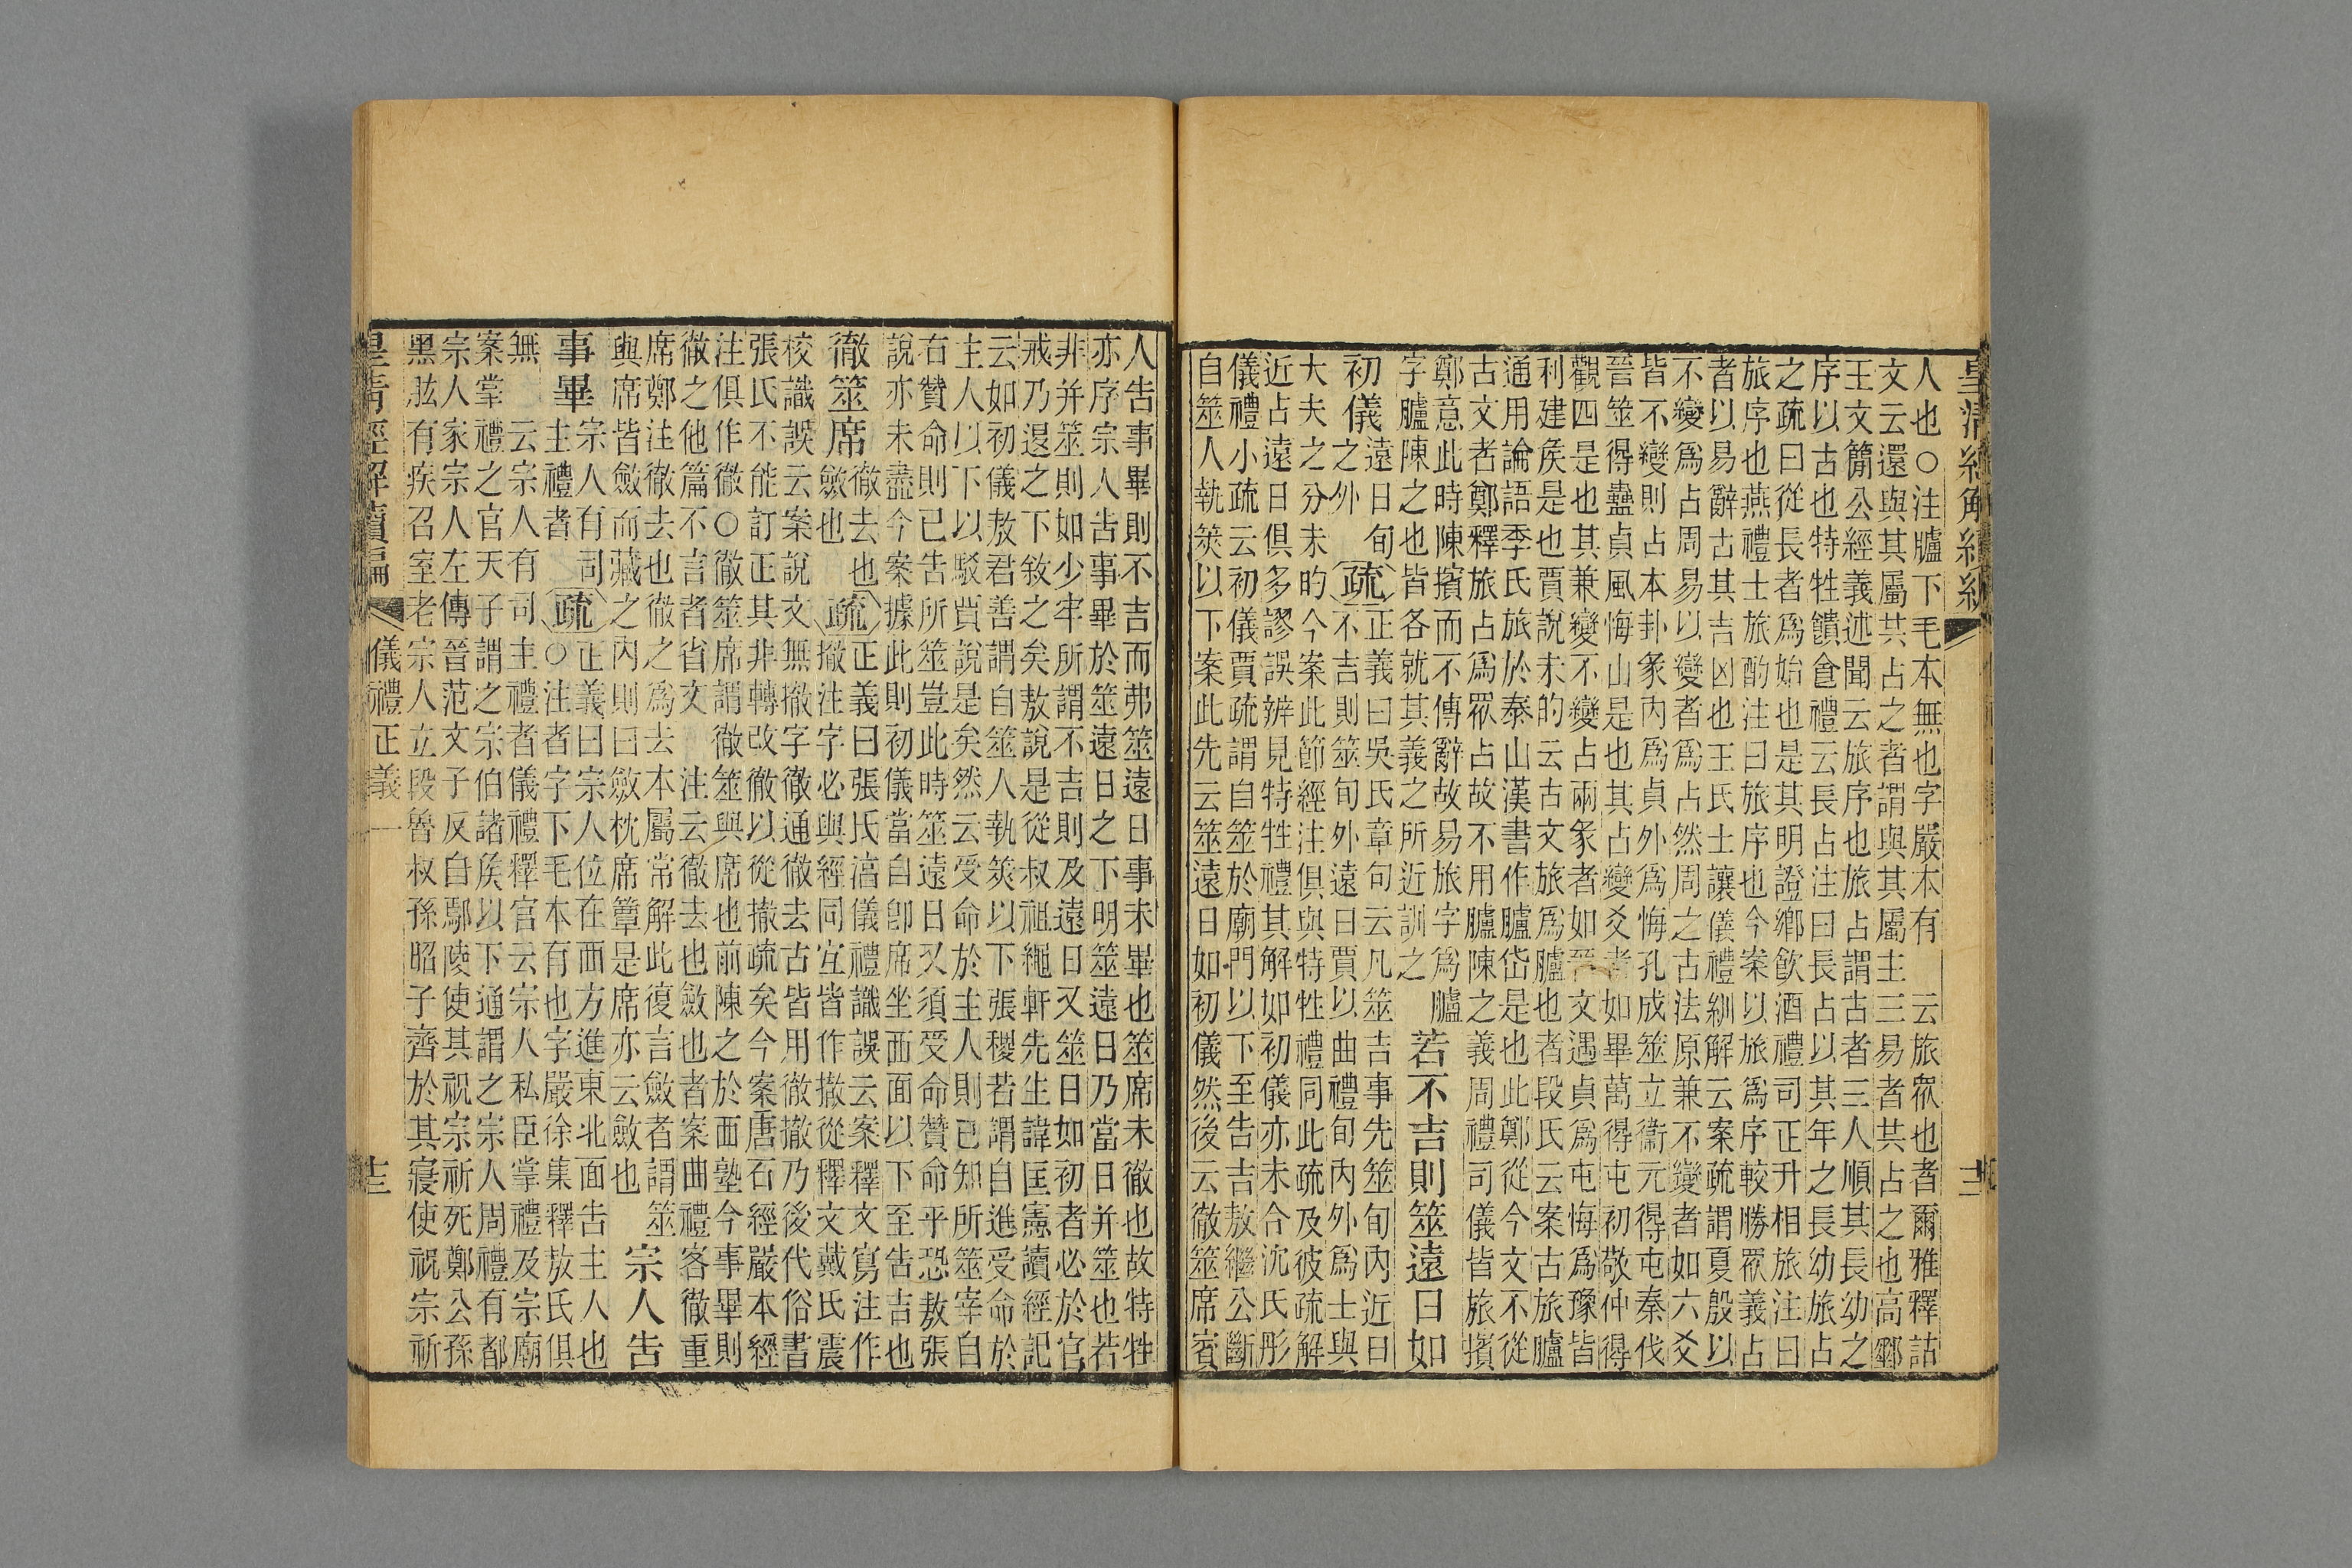 皇清經解續編
人也○注臚下毛本無也字嚴本有 云旅眾也者爾雅釋詁
文云還與其屬共占之者謂與其屬主三易者共占之也高郵
王文簡公經義述聞云旅序也旅占謂古者三人順其長幼之
序以古也特牲饋食禮云長占注曰長占以其年之長幼旅占
之疏曰從長者為始也是其明證鄉飲酒禮司正升相旅注曰
旅序也燕禮士旅酌注曰旅序也今案以旅為序較勝眾義占
者以易辭古其吉凶也王氏士讓儀禮紃解云案疏謂夏殷以
不變為占周易以變者為占然周之古法原兼不變者如六爻
皆不變則占本卦彖內為貞外為悔孔成筮立衞元得屯秦伐
晉筮得蠱貞風悔山是也其占變爻者如畢萬得屯初敬仲得
觀四是也其兼變不變占兩彖者如晉文遇貞為屯悔為豫皆
利建矦是也賈說未的云古文旅為臚也者段氏云案古旅臚
通用論語季氏旅於泰山漢書作臚岱是也此鄭從今文不從
古文者鄭釋旅占為眾占故不用臚陳之義周禮司儀皆旅擯
鄭意此時陳擯而不傳辭故易旅字為臚
字臚陳之也皆各就其義之所近訓之 若不吉則筮遠日如
初儀遠日旬之外疏正義曰吳氏章句云凡筮吉事先筮旬內近日
不吉則筮旬外遠日賈以曲禮旬內外為士與
大夫之分未的今案此節經注俱與特牲禮同此疏及彼疏解
近占遠日俱多謬誤辨見特牲禮其解如初儀亦未合沈氏彤
儀禮小疏云初儀賈疏謂自筮於廟門以下至告吉敖繼公斷
自筮人執筴以下案此先云筮遠日如初儀然後云徹筮席宗
人告事畢則不吉而弗筮遠日事未畢也筮席未徹也故特牲
亦序宗人告事畢於筮遠日之下明筮遠日乃當日并筮也若
非并筮則如少牢所謂不吉則及遠日又筮日如初者必於官
戒乃退之下敘之矣敖說是從叔祖繩軒先生諱匡憲讀經記
云如初儀敖君善謂自筮人執筴以下張稷若謂自進受命於
主人以下以駁賈說是矣然云受命於主人則已知所筮宰自
右贊命則已告所筮豈此時筮遠日又須受命贊命乎恐敖張
說亦未盡今案據此則初儀當自卽席坐西面以下至告吉也
徹筮席徹去也斂也疏正義曰張氏淳儀禮識誤云案釋文寫注作
撤注字必與經同宜皆作撤從釋文戴氏震
校識誤云案說文無撤字徹通徹去古皆用徹撤乃後代俗書
張氏不能訂正其非轉改徹以從撤疏矣今案唐石經嚴本經
注俱作徹○徹筮席謂徹筮與席也前陳之於西塾今事畢則
徹之他篇不言者省文 注云徹去也斂也者案曲禮客徹重
席鄭注徹去也徹之為去本屬常解此復言斂者謂筮
與席皆斂而藏之內則曰斂枕席簟是席亦云斂也 宗人告
事畢宗人有司主禮者疏正義曰宗人位在西方進東北面告主人也
○注者字下毛本有也字嚴徐集釋敖氏俱
無 云宗人有司主禮者儀禮釋官云宗人私臣掌禮及宗廟
案掌禮之官天子謂之宗伯諸矦以下通謂之宗人周禮有都
宗人家宗人左傳晉范文子反自鄢陵使其祝宗祈死鄭公孫
黑肱有疾召室老宗人立段魯叔孫昭子齊於其寢使祝宗祈
皇清經解續編 儀禮正義一 十三